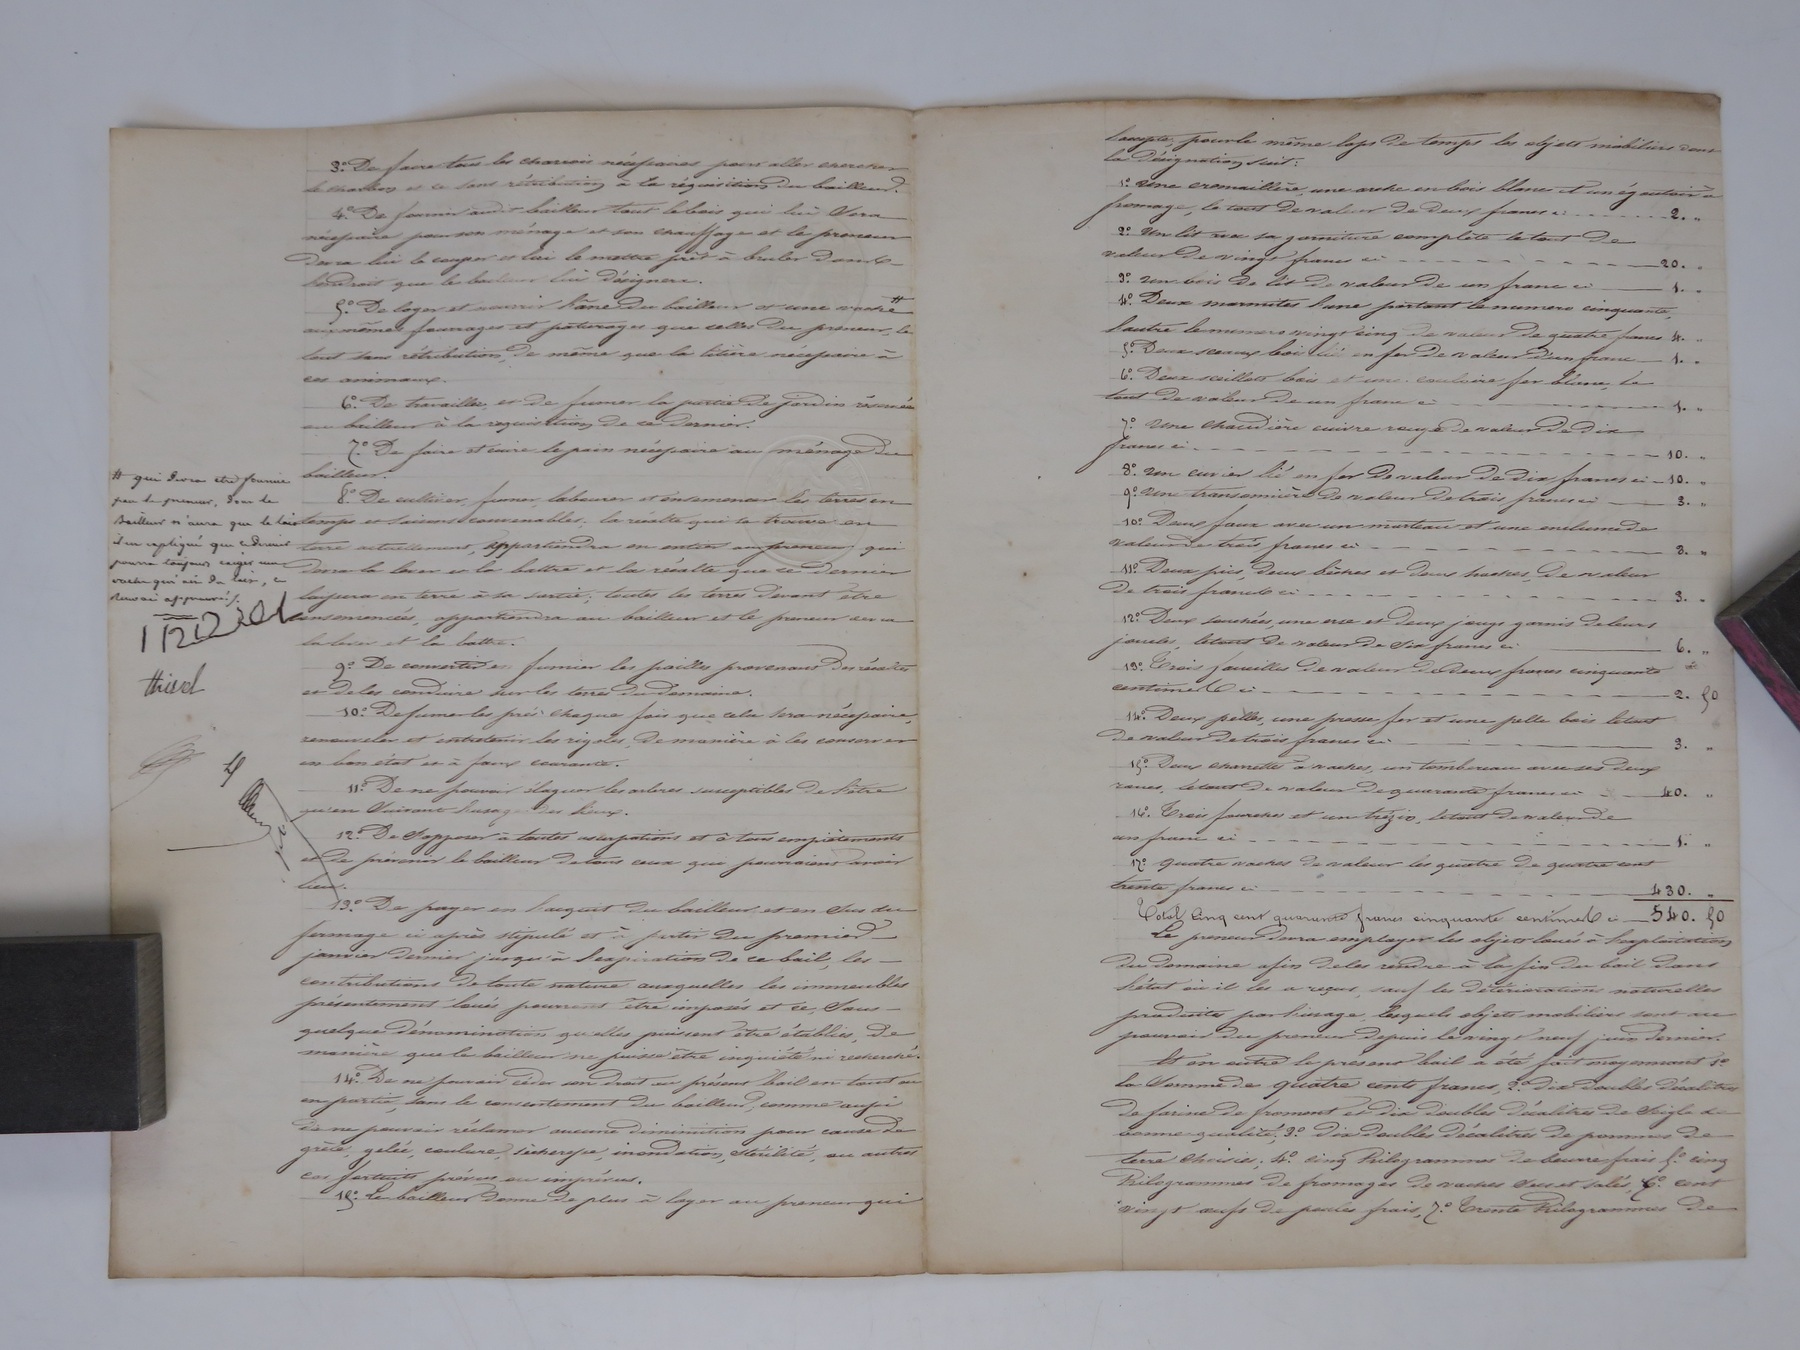 3.° De faire tous les charrois nécessaires pour aller chercher
le charbon et ce sans rétribution à la réquisition du bailleur.
4.° De fournir audit bailleur tout le bois qui lui sera
nécessaire pour son ménage et son chauffage et le preneur
devra lui le couper et lui le mettre prêt à bruler dans
l'endroit que le bailleur lui désignera.
5.° De loger et nourrir l'âne du bailleur et une vache #
aux mêmes fourrages et pâturages que celles du preneur, le
tout sans rétribution, de même que la litière nécessaire à
ces animaux.
6.° De travailler et de fumer la partie de jardin réservée
au bailleur à la requisition de ce dernier.
7.° De faire et cuire le pain nécessaire au ménage du
bailleur.
8.° De cultiver, fumer, labourer et ensemencer les terres en
temps et saisons convenables; la récolte qui se trouve en
terre actuellement, appartiendra en entier au preneur qui
devra la lever et la battre et la récolte que ce dernier
laissera en terre à sa sortie; toutes les terres devant être
ensemencées, appartiendra au bailleur et le preneur devra
la lever et la battre.
9.° De convertir en fumier les pailles provenant des récoltes
et de les conduire sur les terres du domaine.
10.° De fumer les prés chaque fois que cela sera nécessaire,
renouveler et entretenir les rigoles, de manière à les conserver
en bon état et à faux courante.
11.° De ne pouvoir élaguer les arbres susceptibles de l'être
qu'en suivant l'usage des lieux.
12.° De s'opposer à toutes usurpations et à tous empiètements
et de prévenir le bailleur de tous ceux que pourraient avoir
lieu.
13.° De payer en l'acquit du bailleur et en sus du
fermage ci après stipulé et à partir du premier
janvier dernier jusqu'à l'expiration de ce bail, les
contributions de toute nature auxquelles les immeubles
présentement loués pourront être imposés et ce, sous
quelque dénomination qu'elles puissent être établies, de
manière que le bailleur ne puisse être inquiété ni recherché.
14.° De ne pouvoir céder son droit au présent bail en tout ou
en partie, sans le consentement du bailleur, comme aussi
de ne pouvoir réclamer aucune diminution pour cause de
grêle, gelée, coulure, sécheresse, inondation, stérilité, ou autres
cas fortuits prévus ou imprévus.
15.° Le bailleur donne de plus à loyer au preneur qui
# qui devra être fournie
par le preneur, dont le
Bailleur n'aura que le lait
il est expliqué que ce dernier
pourra toujours exiger une
vache qui ait du lait, ce
renvoi approuvé.
l'accepte, pour le même laps de temps les objets mobiliers dont
la désignation suit:
1.° Une cremaillère, une arche en bois blanc et un égouttoir à
fromage, le tout de valeur de deux francs ci 2. "
2.° Un lit avec sa garniture complète le tout de
valeur de vingt francs ci 20. "
3.° Un bois de lit de valeur de un franc ci 1. "
4.° Deux marmites l'une portant le numero cinquante,
l'autre le numero vingt cinq de valeur de quatre francs 4. "
5.° Deux sceaux bois lié en fer de valeur d'un franc 1. "
6.° Deux seillots bois et une couloire fer blanc, le
tout de valeur de un franc ci 1. "
7.° Une chaudière cuivre rouge de valeur de dix
francs ci 10. "
8.° Un cuvier lié en fer de valeur de dix francs ci 10. "
9.° Une transonnière de valeur de trois francs ci 3. "
10.° Deux faux avec un marteau et une enclume de
valeur de trois francs ci 3. "
11.° Deux pics, deux bêches et deux haches, de valeur
de trois francs ci 3. "
12.° Deux araires, une erse et deux jougs garnis de leurs
joucles, le tout de valeur de six francs ci 6. "
13.° Trois faucilles de valeur de deux francs cinquante
centimes ci 2. 50
14.° Deux pelles, une presse fer et une pelle bois le tout
de valeur de trois francs ci 3. "
15.° Deux charrettes à vaches, un tombereau avec ses deux
roues, le tout de valeur de quarante francs ci 40. "
16.° Trois fourches et un trézio, le tout de valeur de
un franc ci 1. "
17.° quatre vaches de valeur les quatre de quatre cent
trente francs ci 430. "
Total cinq cent quarante francs cinquante centimes ci 540. 50
Le preneur devra employer les objets loués à l'exploitation
du domaine afin de les rendre à la fin du bail dans
l'état où il les a reçus, sauf les détériorations naturelles
produites par l'usage, lesquels objets mobiliers sont au
pouvoir du preneur depuis le vingt neuf juin dernier.
Et en outre le présent bail a été fait moyennant 1.°
la somme de quatre cents francs, 2.° dix doubles décalitres
de farine de froment et dix doubles décalitres de seigle de
bonne qualité, 3.° dix doubles décalitres de pommes de
terre choisies; 4.° cinq Kilogrammes de beurre frais 5.° cinq
Kilogrammes de fromages de vaches secs et salés, 6.° cent
vingt œufs de poules frais, 7.° Trente Kilogrammes de